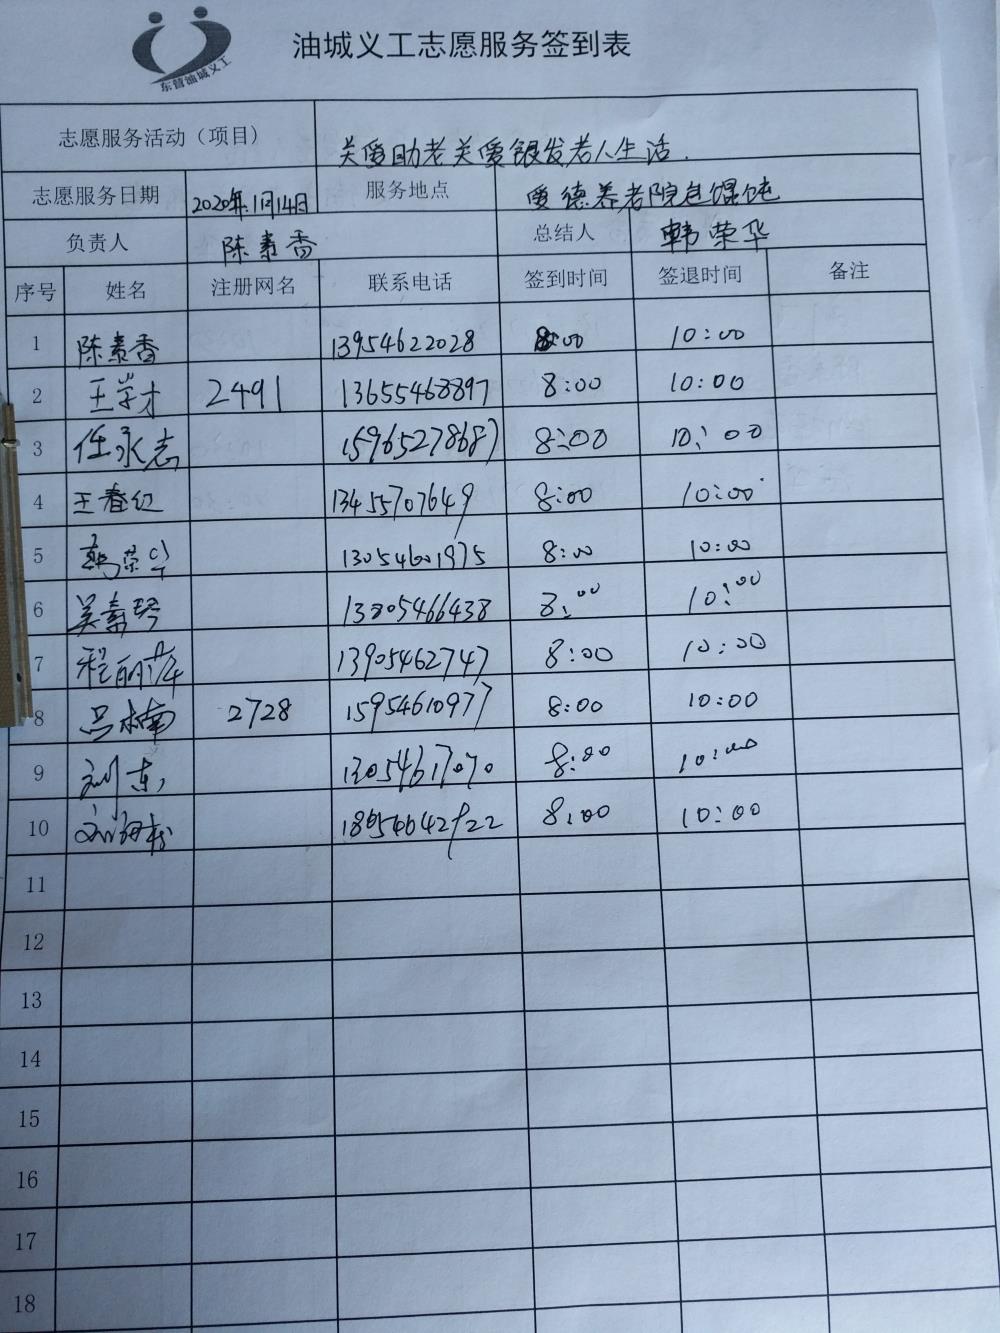 东营油城义工
油城义工志愿服务签到表
志愿服务活动（项目） 关爱助老关爱银发老人生活.
志愿服务日期 2020年1月14日 服务地点 爱德养老院包馄饨
负责人 陈素香 总结人 韩荣华
序号 姓名 注册网名 联系电话 签到时间 签退时间 备注
1 陈素香 13954622028 8:00 10:00
2 王学才 2491 13655468897 8:00 10:00
3 任永志 15965278687 8:00 10:00
4 王春红 13455707649 8:00 10:00
5 韩荣华 13054601975 8:00 10:00
6 吴素琴 13305466438 8:00 10:00
7 程丽萍 13905462747 8:00 10:00
8 吕木南 2728 15954610977 8:00 10:00
9 刘东 13054617070 8:00 10:00
10 8:00 10:00
11
12
13
14
15
16
17
18